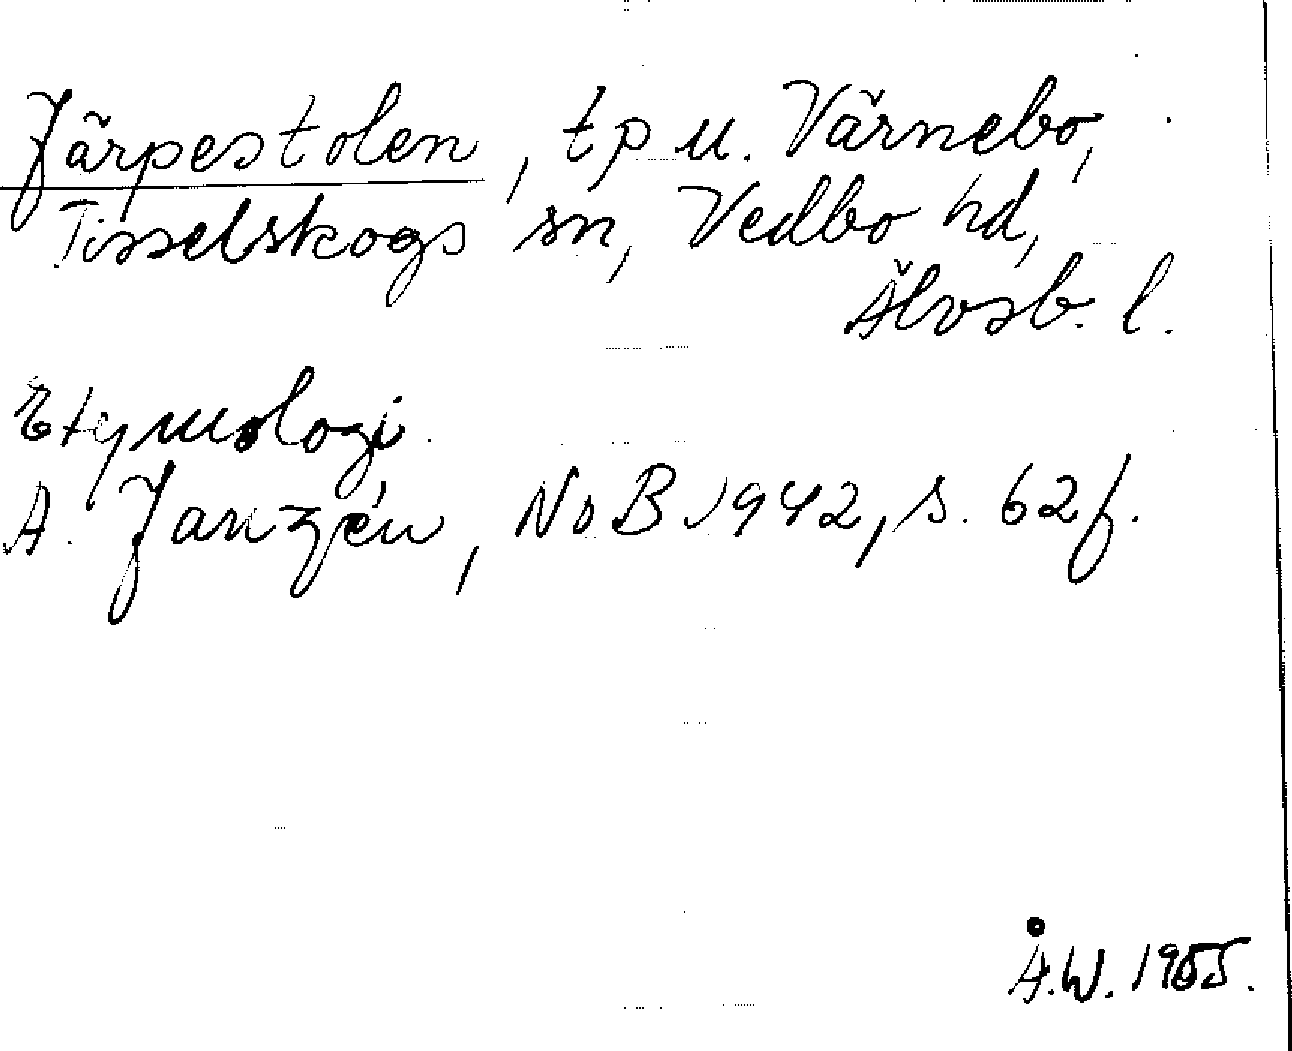 Järpestolen, tp u. Värnebo,
Tisselskogs sn, Vedbo hd,
Älvsb. l.
Etymologi
A. Janzén, NoB 1942, s. 62 f.
Å.W. 1955.